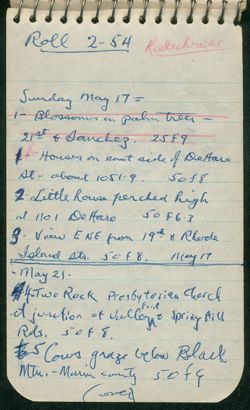 Roll 2-54
Kodachrome
Sunday May 17=
1- Blossoms on palm trees -
21st & Sanchez. 25f9
1- Houses on east side of DeHaro
St- about 1051-9. 50f8
2 Little house perched high
at 1101 DeHaro 50f6.3
3- View ENE from 19th & Rhode
Island Sts. 50f8. May 17
-May 21-
4-Two Rock Presbyterian Church
at junction of & Spring Hill
Rds. 50f8.
5 Cows graze below Black
Mtn.- Marin county 50f9
(over)